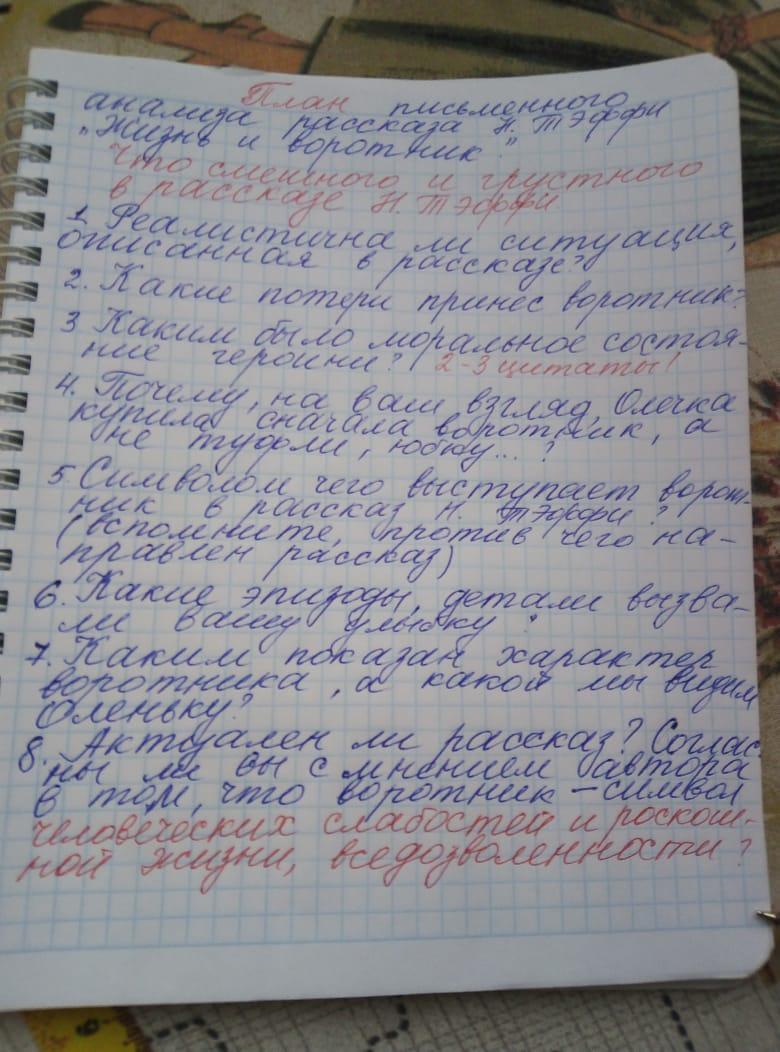 План письменного
анализа рассказа Н. Тэффи
"Жизнь и воротник".
Что смешного и грустного
в рассказе Н. Тэффи
1. Реалистична ли ситуация,
описанная в рассказе?
2. Какие потери принес воротник?
3 Каким было моральное состоя-
ние героини? 2-3 цитаты!
4. Почему, на ваш взгляд, Олечка
купила сначала воротник, а
не туфли, юбку...?
5 Символом чего выступает ворот-
ник в рассказ Н. Тэффи?
(вспомните, против чего на-
правлен рассказ)
6. Какие эпизоды, детали вызва-
ли вашу улыбку?
7. Каким показан характер
воротника, а какой мы видим
Оленьку?
8. Актуален ли рассказ? Соглас-
ны ли вы с мнением автора
в том, что воротник - символ
человеческих слабостей и роскош-
ной жизни, вседозволенности?